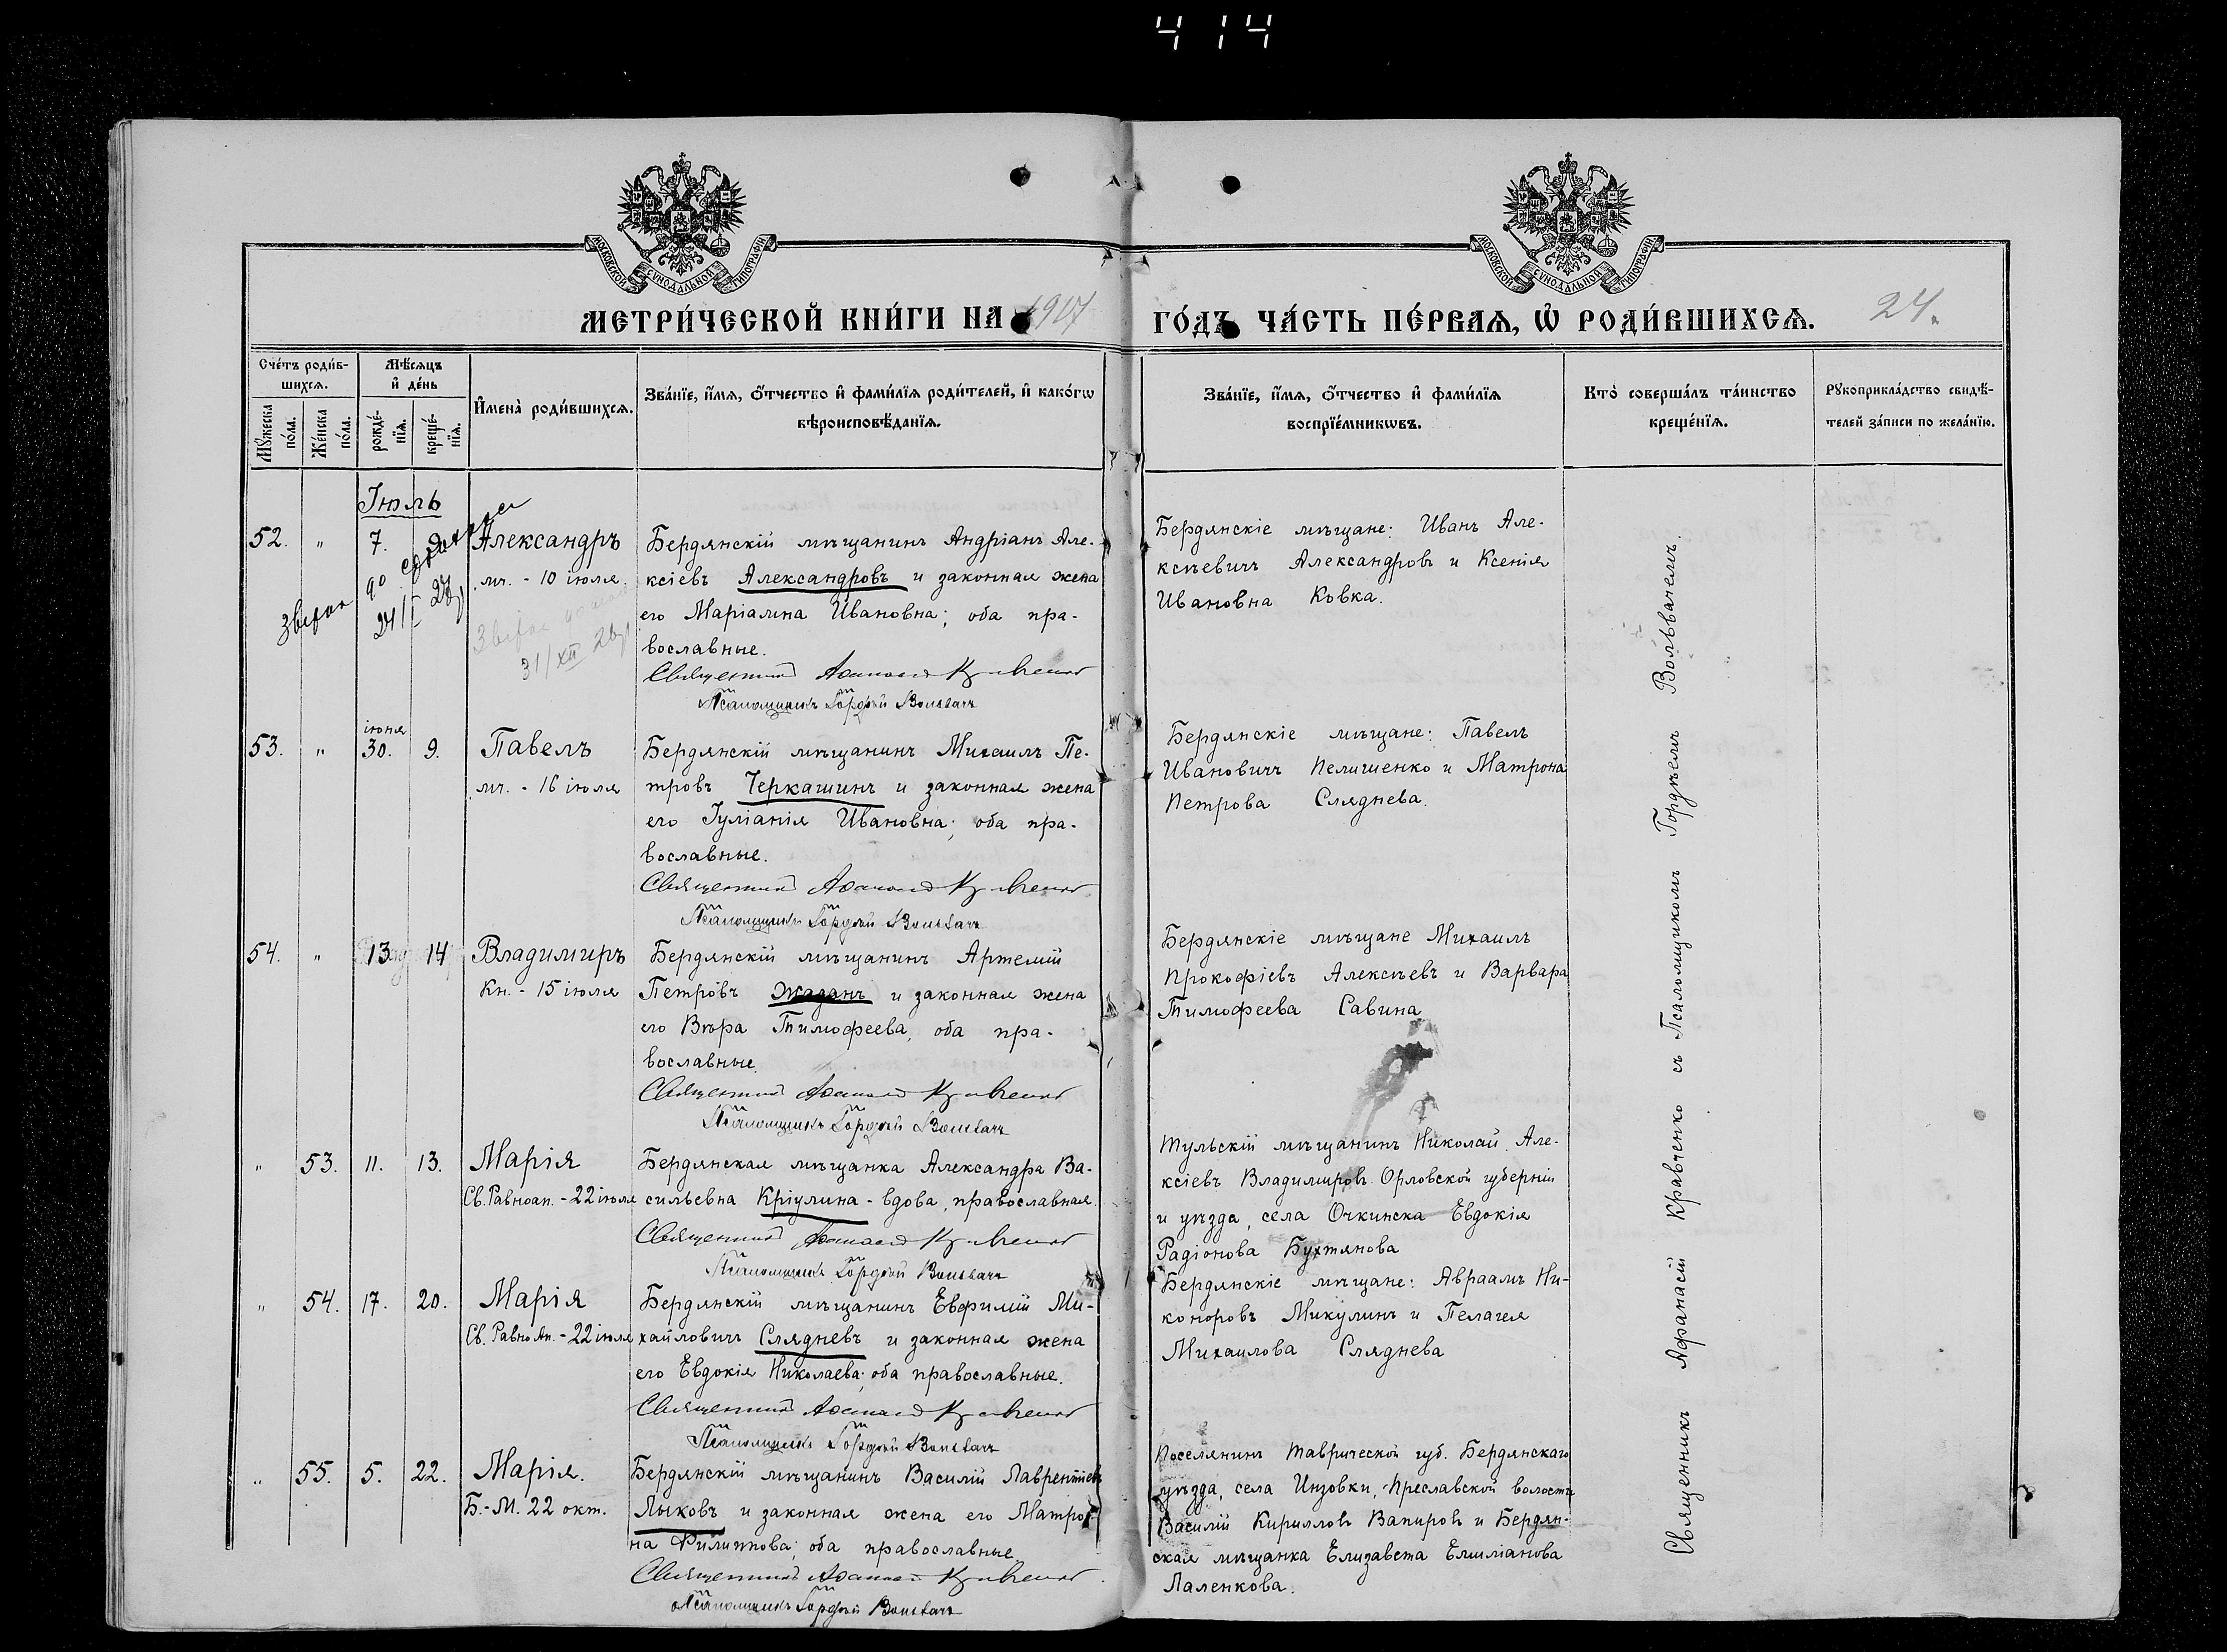 414
МОСКОВСКОЙ СѴНОДАЛЬНОЙ ТИПОГРАФІИ
МОСКОВСКОЙ СѴНОДАЛЬНОЙ ТИПОГРАФІИ
МЕТРИ́ЧЕСКОЙ КНИ́ГИ НА 1907
ГО́ДЪ ЧА́СТЬ ПЕ́РВАѦ, Ѡ҆ РОДИ́ВШИХСѦ.
24.
Сче́тъ роди́в-
шихсѧ.
Мꙋ́жеска по́ла.
Же́нска по́ла.
Мѣ́сѧцъ
и҆ де́нь
рожде́-
нїѧ.
креще́-
нїѧ.
И҆мена̀ роди́вшихсѧ.
Зва́нїе, и҆́мѧ, ѻ҆́тчество и҆ фами́лїѧ роди́телей, и҆ како́гѡ
вѣроисповѣ́данїѧ.
Зва́нїе, и҆́мѧ, ѻ҆́тчество и҆ фами́лїѧ
воспрїе́мникѡвъ.
Кто̀ соверша́лъ та́инство
креще́нїѧ.
Рꙋкоприкла́дство свидѣ́-
телей за́писи по жела́нїю.
Іюль
52. " 7. 9. Александръ
мч. - 10 іюля.
24/I 27
31/XII
Бердянскій мѣщанинъ Андріанъ Але-
ксіевъ Александровъ и законная жена
его Маріамна Ивановна; оба пра-
вославные.
Священникъ Афанасій Кравченко
Псаломщикъ Гордѣй
Бердянскіе мѣщане: Иванъ Але-
ксѣевичъ Александровъ и Ксенія
Ивановна Ковка.
53. " іюня 30. 9. Павелъ
мч. - 16 іюля
Бердянскій мѣщанинъ Михаилъ Пе-
тровъ Черкашинъ и законная жена
его Іуліанія Ивановна; оба пра-
вославные.
Священникъ Афанасій Кравченко
Псаломщикъ Гордѣй
Бердянскіе мѣщане: Павелъ
Ивановичъ Пелишенко и Матрона
Петрова Сляднева.
54. " 13. 14 Владимиръ
Кн. - 15 іюля
Бердянскій мѣщанинъ Артемій
Петровъ Жаданъ и законная жена
его Вѣра Тимофеева, оба пра-
вославные.
Священникъ Афанасій Кравченко
Псаломщикъ Гордѣй
Бердянскіе мѣщане Михаилъ
Прокофіевъ Алексѣевъ и Варвара
Тимофеева Савина
" 53. 11. 13. Марія
Св. Равноап. - 22 іюля
Бердянская мѣщанка Александра Ва-
сильевна Кріулина - вдова, православная.
Священникъ Афанасій Кравченко
Псаломщикъ Гордѣй
Тульскій мѣщанинъ Николай Але-
ксіевъ Владимировъ. Орловской губерніи
и уѣзда, села Очкинска Евдокія
Радіонова Бухтянова
" 54. 17. 20. Марія
Св. Равно Ап. - 22 іюля
Бердянскій мѣщанинъ Евфимій Ми-
хайловичъ Слядневъ и законная жена
его Евдокія Николаева; оба православные.
Священникъ Афанасій Кравченко
Псаломщикъ Гордѣй
Бердянскіе мѣщане: Авраамъ Ни-
коноровъ Микулинъ и Пелагея
Михаилова Сляднева
" 55. 5. 22. Марія.
Б.-М. 22 окт.
Бердянскій мѣщанинъ Василій Лаврентіевъ
Лыковъ и законная жена его Матро-
на Филиппова; оба православные.
Священникъ Афанасій Кравченко
Псаломщикъ Гордѣй
Поселянинъ Таврической губ. Бердянскаго
уѣзда, села Инзовки, Преславской волости
Василій Кирилловъ Вапировъ и Бердян-
ская мѣщанка Елизавета Емиліанова
Паленкова.
Священникъ Афанасій Кравченко съ Псаломщикомъ Гордѣемъ